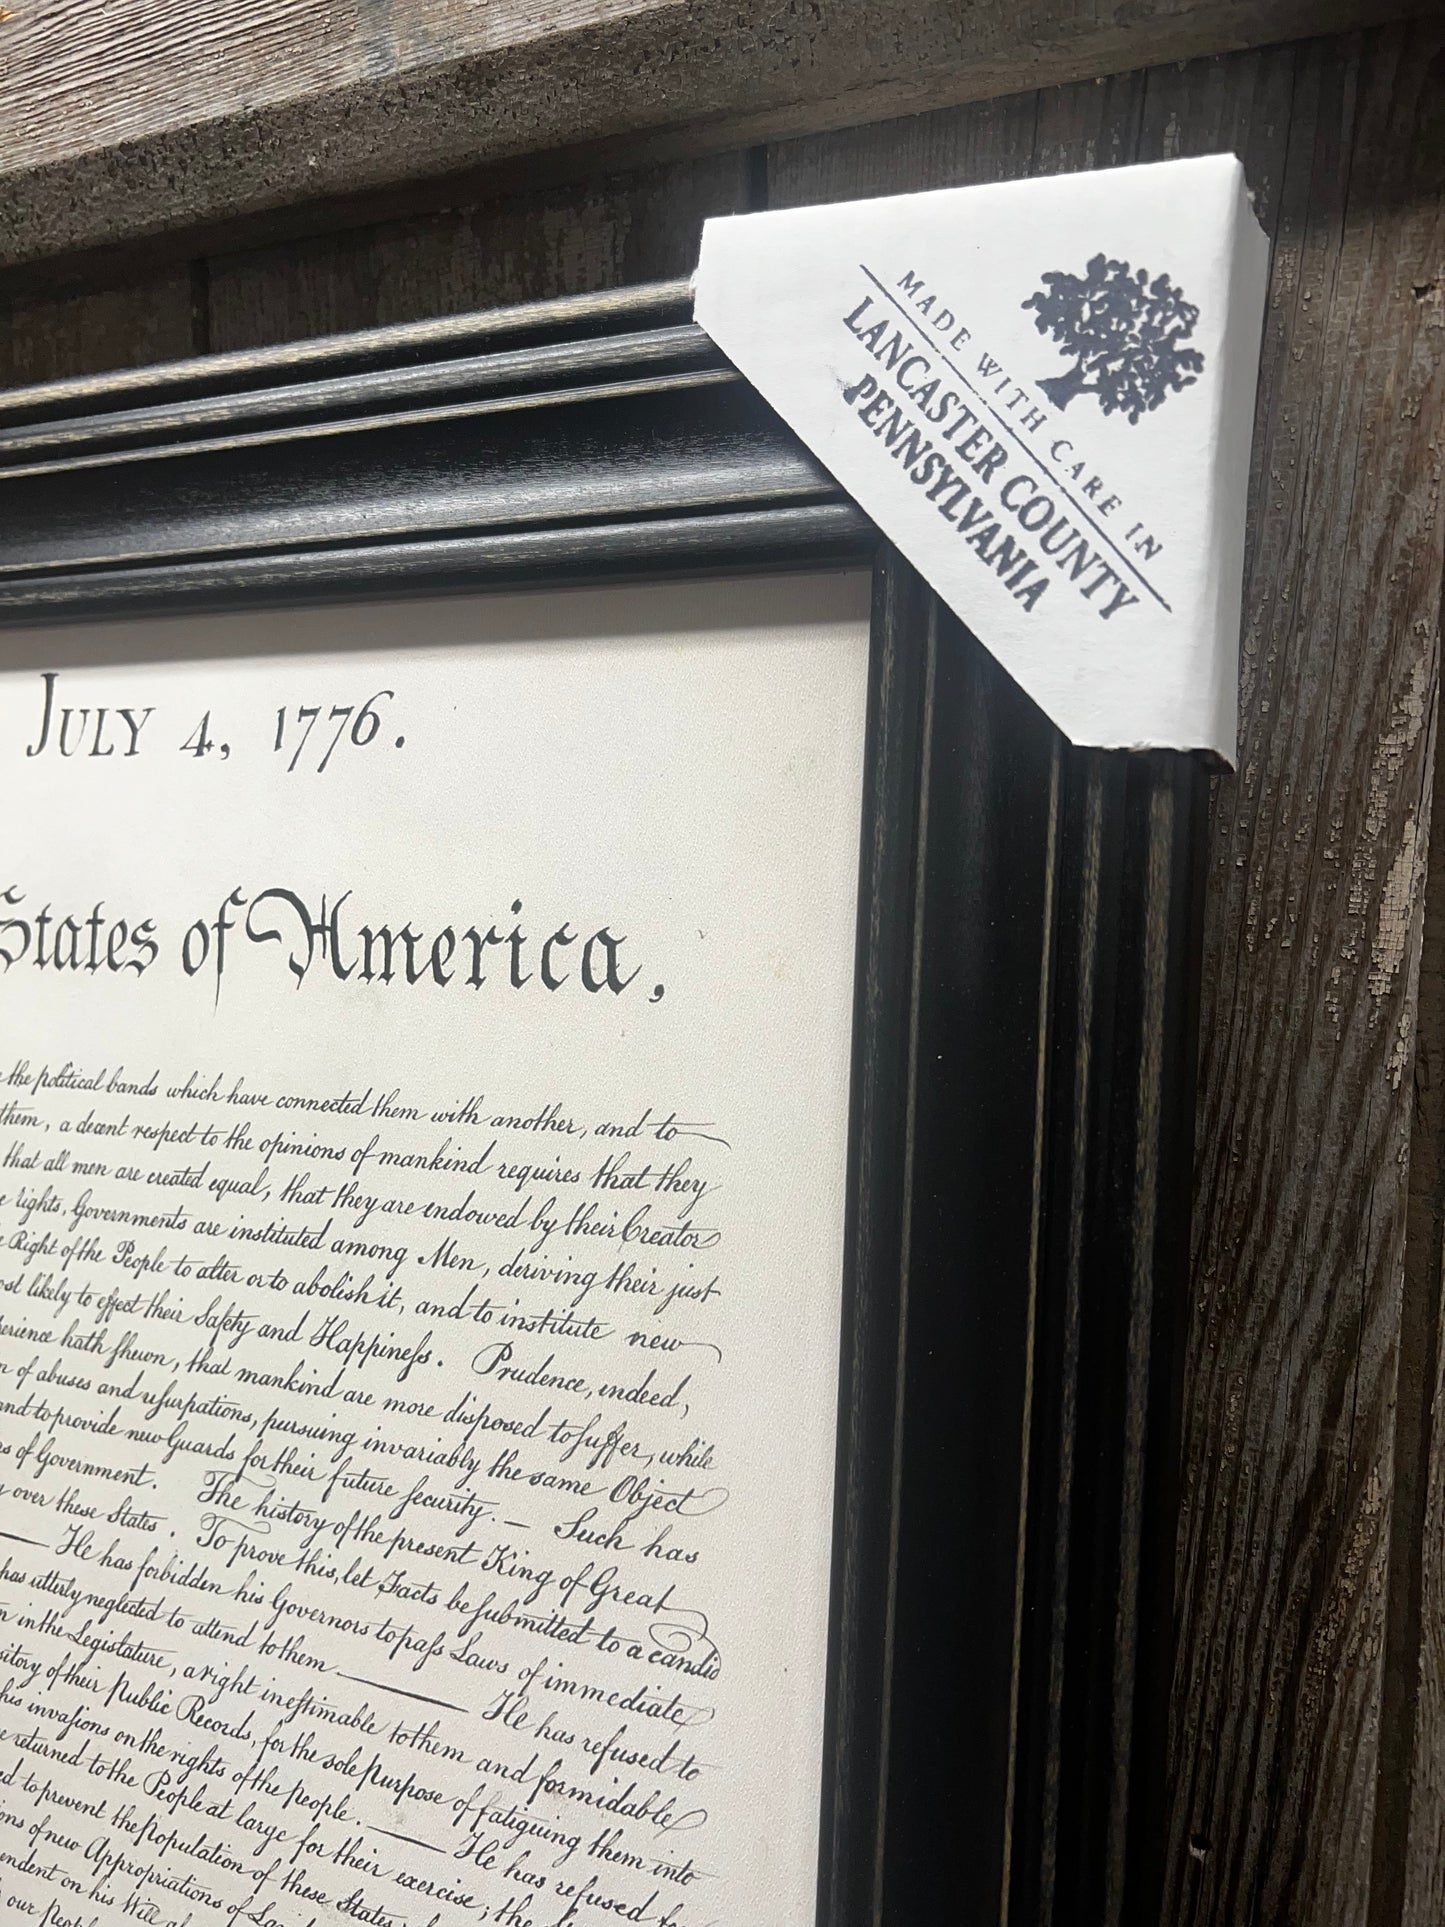 MADE WITH CARE IN
LANCASTER COUNTY
PENNSYLVANIA
JULY 4, 1776.
States of America,
the political bands which have connected them with another, and to
them, a decent respect to the opinions of mankind requires that they
that all men are created equal, that they are endowed by their Creator
rights, Governments are instituted among Men, deriving their just
Right of the People to alter or to abolish it, and to institute new
likely to effect their Safety and Happineſs. Prudence, indeed,
hath ſhewn, that mankind are more disposed to ſuffer, while
of abuses and uſurpations, pursuing invariably the same Object
and to provide new Guards for their future ſecurity. — Such has
of Government. The history of the present King of Great
over these States. To prove this, let Facts be ſubmitted to a candid
— He has forbidden his Governors to paſs Laws of immediate
has utterly neglected to attend to them. — He has refused to
in the Legislature, a right ineſtimable to them and formidable
of their Public Records, for the sole purpose of fatiguing them into
his invaſions on the rights of the people. — He has refused for
returned to the People at large for their exercise; the
to prevent the population of these States
of new Appropriations of
on his Will
our